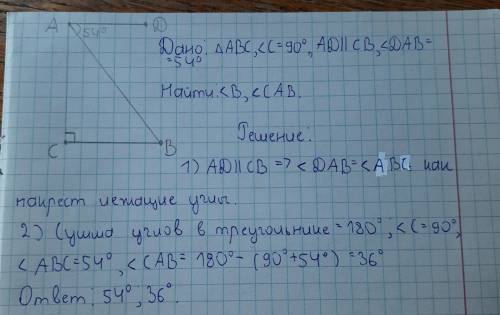 A D
54°
C B
Дано: △ABC, <C=90°, AD||CB, <DAB=
=54°
Найти: <B, <CAB.
Решение:
1) AD||CB => <DAB=<ABC как
накрест лежащие углы.
2) Сумма углов в треугольнике = 180°, <C=90°,
<ABC=54°, <CAB= 180°-(90°+54°)=36°
Ответ: 54°, 36°.